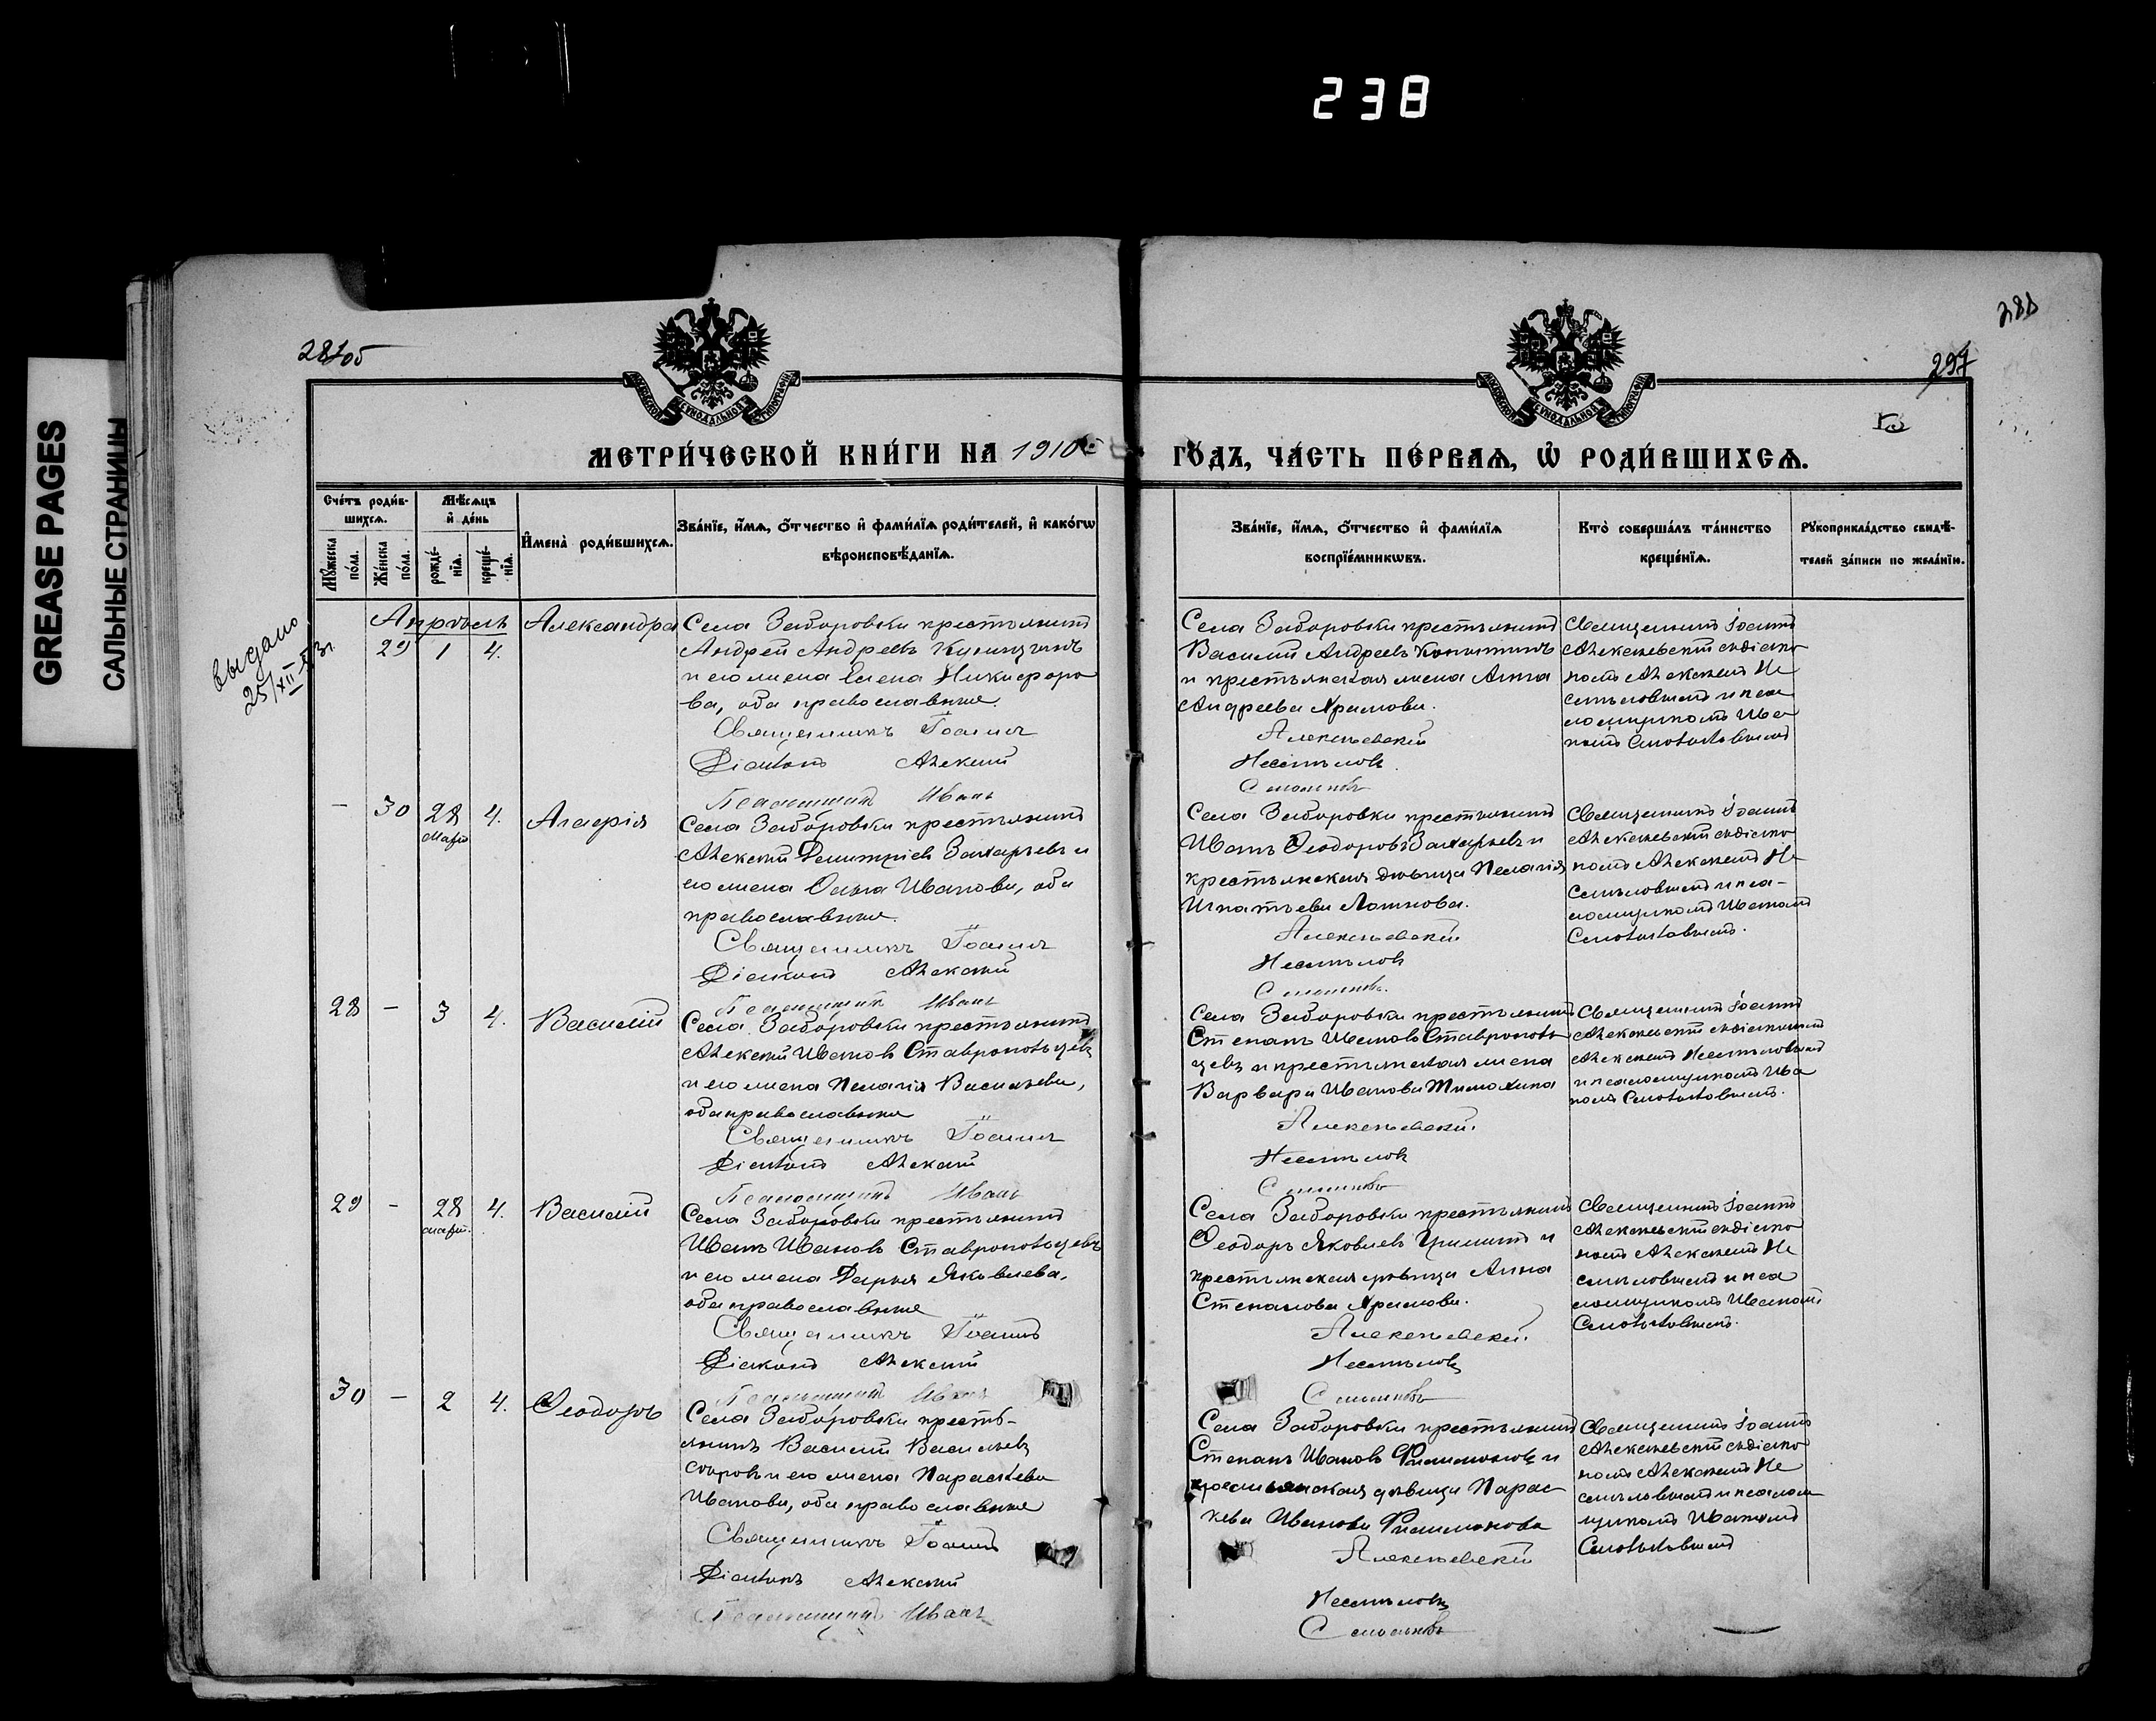 238
GREASE PAGES
САЛЬНЫЕ СТРАНИЦЫ
287об
288
297
выдано
25/XII-53г.
МЕТРИ́ЧЕСКОЙ КНИ́ГИ НА 1910й
ГО́ДЪ, ЧА́СТЬ ПЕ́РВАѦ, Ѡ҆ РОДИ́ВШИХСѦ.
Сче́тъ роди́в-
шихсѧ.
Мѣ́сѧцъ
и҆ де́нь
Мꙋ́жеска
по́ла.
Же́нска
по́ла.
рожде́-
нїѧ.
креще́-
нїѧ.
И҆мена̀ роди́вшихсѧ.
Зва́нїе, и҆́мѧ, ѻ҆́тчество и҆ фами́лїѧ роди́телей, и҆ како́гѡ
вѣроисповѣ́данїѧ.
Зва́нїе, и҆́мѧ, ѻ҆́тчество и҆ фами́лїѧ
воспрїе́мникѡвъ.
Кто̀ соверша́лъ та́инство
креще́нїѧ.
Рꙋкоприкла́дство свидѣ́-
телей за́писи по жела́нїю.
Апрѣль
29 1 4.
Александра
Села Заборовки крестьянинъ
Андрей Андреевъ
и его жена Елена Никифоро
ва, оба православные.
Священникъ Іоаннъ
Діаконъ Алексѣй
Псаломщикъ Иванъ
Села Заборовки крестьянинъ
Василій Андреевъ
и крестьянская жена Анна
Андреева Храмова.
Алексѣевскій
Несмѣловъ
Смольковъ
Священникъ Іоаннъ
Алексѣевскій съ діако
номъ Алексѣемъ Не
смѣловымъ и пса
ломщикомъ Ива
номъ Смольковымъ
— 30 28 4.
марта
Агаѳія
Села Заборовки крестьянинъ
Алексѣй Димитріевъ Захарьевъ и
его жена Ольга Иванова, оба
православные.
Священникъ Іоаннъ
Діаконъ Алексѣй
Псаломщикъ Иванъ
Села Заборовки крестьянинъ
Иванъ Ѳеодоровъ Захарьевъ и
крестьянская дѣвица Пелагія
Игнатьева Логинова.
Алексѣевскій
Несмѣловъ
Смольковъ.
Священникъ Іоаннъ
Алексѣевскій съ діако
номъ Алексѣемъ Не
смѣловымъ и пса-
ломщикомъ Иваномъ
Смольковымъ.
28 — 3 4.
Василій
Села Заборовки крестьянинъ
Алексѣй Ивановъ Ставропольцевъ
и его жена Пелагія Васильева,
оба православные
Священникъ Іоаннъ
Діаконъ Алексѣй
Псаломщикъ Иванъ
Села Заборовки крестьянинъ
Степанъ Ивановъ Ставрополь
цевъ и крестьянская жена
Варвара Иванова Тимохина
Алексѣевскій.
Несмѣловъ
Смольковъ
Священникъ Іоаннъ
Алексѣевскій съ діакономъ
Алексѣемъ Несмѣловымъ
и псаломщикомъ Ива
номъ Смольковымъ.
29 — 28 4.
марта.
Василій
Села Заборовки крестьянинъ
Иванъ Ивановъ Ставропольцевъ
и его жена Дарья Яковлева,
оба православные
Священникъ Іоаннъ
Діаконъ Алексѣй
Псаломщикъ Иванъ
Села Заборовки крестьянинъ
Ѳеодоръ Яковлевъ и
крестьянская дѣвица Анна
Степанова Храмова.
Алексѣевскій.
Несмѣловъ
Смольковъ
Священникъ Іоаннъ
Алексѣевскій съ діако
номъ Алексѣемъ Не
смѣловымъ и пса
ломщикомъ Иваномъ
Смольковымъ.
30 — 2 4.
Ѳеодоръ
Села Заборовки кресть-
янинъ Василій Васильевъ
и его жена Параскева
Иванова, оба православные
Священникъ Іоаннъ
Діаконъ Алексѣй
Псаломщикъ Иванъ
Села Заборовки крестьянинъ
Степанъ Ивановъ Филимоновъ и
крестьянская дѣвица Парас
кева Иванова Филимонова
Алексѣевскій
Несмѣловъ
Смольковъ
Священникъ Іоаннъ
Алексѣевскій съ діако
номъ Алексѣемъ Не
смѣловымъ и псалом
щикомъ Иваномъ
Смольковымъ